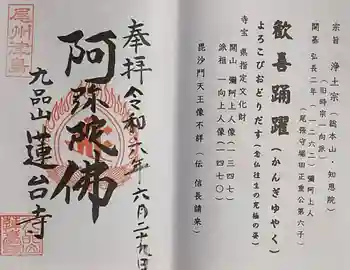 宗旨 浄土宗(総本山・知恩院)
(旧時宗一向派)
開基 弘長二年(一二六二)彌阿上人
(尾張守堀田正重公第六子)
歓喜踊躍(かんぎゆやく)
よろこびおどりだす(念仏往生の究極の姿)
寺宝 県指定文化財
開山 彌阿上人像(一三四七)
派祖 一向上人像(一四七〇)
毘沙門天王像不軽(伝 信長請来)
奉拝 令和六年六月二十九日
阿弥陀佛
九品山 蓮台寺
尾州津島